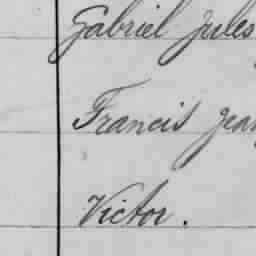 Gabriel Jules
Francis Jean
Victor.